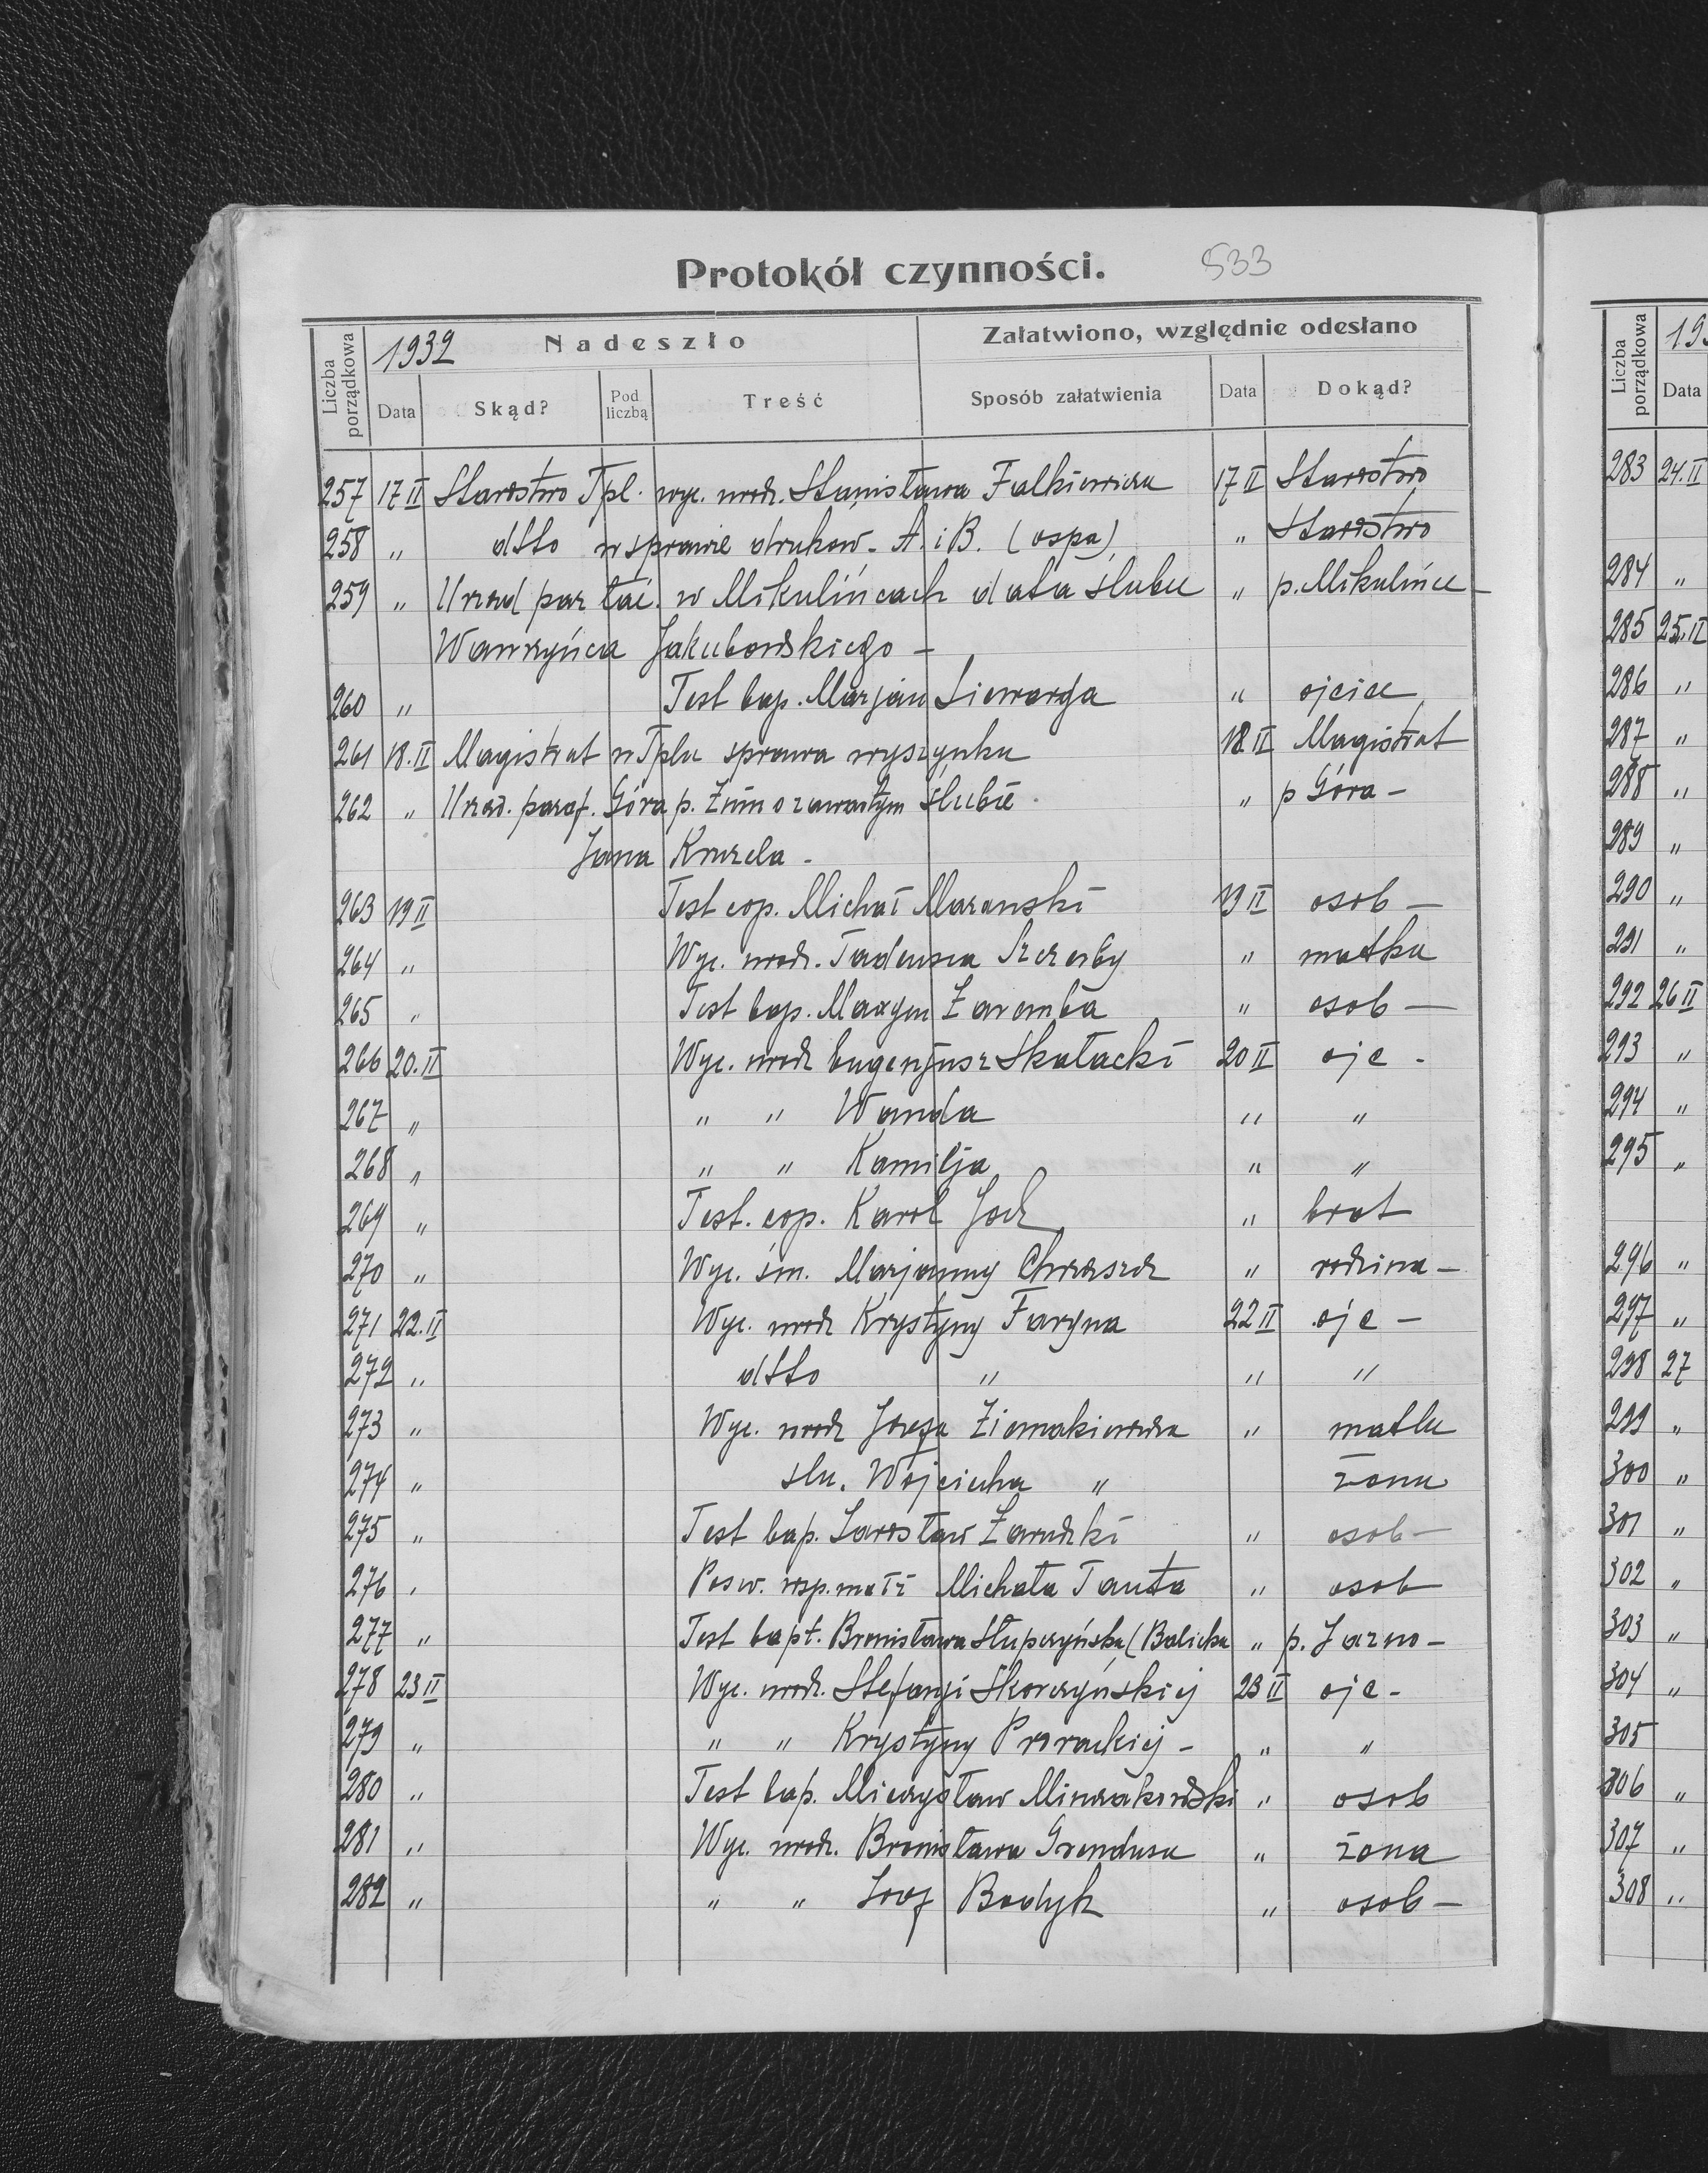 Protokół czynności. 533
Liczba porządkowa 1932 Nadeszło Załatwiono, względnie odesłano
Data Skąd? Pod liczbą Treść Sposób załatwienia Data Dokąd?
257 17 II Starostwo Tpl. wyc. urodz. Stanisława Falkiewicza 17 II Starostwo
258 " dtto w sprawie druków. A. i B. (ospa) " Starostwo
259 " Urząd par łać. w Mikulińcach data ślubu " p. Mikulińce -
Wawrzyńca Jakubowskiego -
260 " Test bap. Marjan "
261 18.II Magistrat w Tplu sprawa wyszynku 18 II Magistrat
262 " Urząd. paraf. Góra p. Żnin o zawartym ślubie. " p Góra -
Jana
263 19 II Test cop. Michał Mazanski 19 II osob -
264 " Wyc. urodz. Tadeusza Szczerby " matka
265 " Test bap. Marjan Zaremba " osob -
266 20.II Wyc. urodz Eugenjusz Skałacki 20 II ojc -
267 " " " Wanda " "
268 " " " Kamilja " "
269 " Test. cop. Karol " brat
270 " Wyc. śm. Marjanny Chrząszcz " rodzina -
271 22.II Wyc. urodz Krystyny Faryna 22 II ojc -
272 " dtto " " "
273 " Wyc. urodz Józefa Ziemakiewicza " matka
274 " ślu. Wojciecha " żona
275 " Test bap. Jarosław Zarudzki " osob -
276 " Posw. wsp. małż Michała Tauta " osob
277 " Test bapt. Bronisława Słupczyńska (Balicka " p.
278 23 II Wyc. urodz. Stefanji Skorczyńskiej 23 II ojc -
279 " " " Krystyny Prorackiej - " "
280 " Test bap. Mieczysław " osob
281 " Wyc. urodz. Bronisława Grendusa " żona
282 " " " Józef Bodyk " osob -
Liczba porządkowa 193
Data
283 24.II
284 "
285 25.II
286 "
287 "
288 "
289 "
290 "
291 "
292 26 II
293 "
294 "
295 "
296 "
297 "
298 27
299 "
300 "
301 "
302 "
303 "
304 "
305
306 "
307 "
308 "